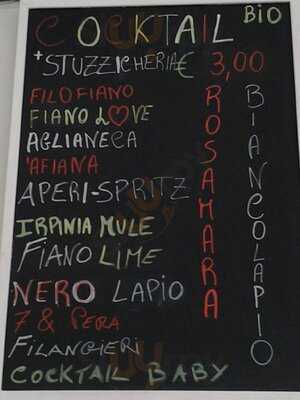 COCKTAIL BIO
+ STUZZICHERIA € 3,00
FILOFIANO
FIANO LOVE
AGLIANECA
'AFIANA
APERI-SPRITZ
IRPINIA MULE
FIANO LIME
NERO LAPIO
7 & PERA
FILANGIERI
COCKTAIL BABY
ROSAMARA
BIANCOLAPIO